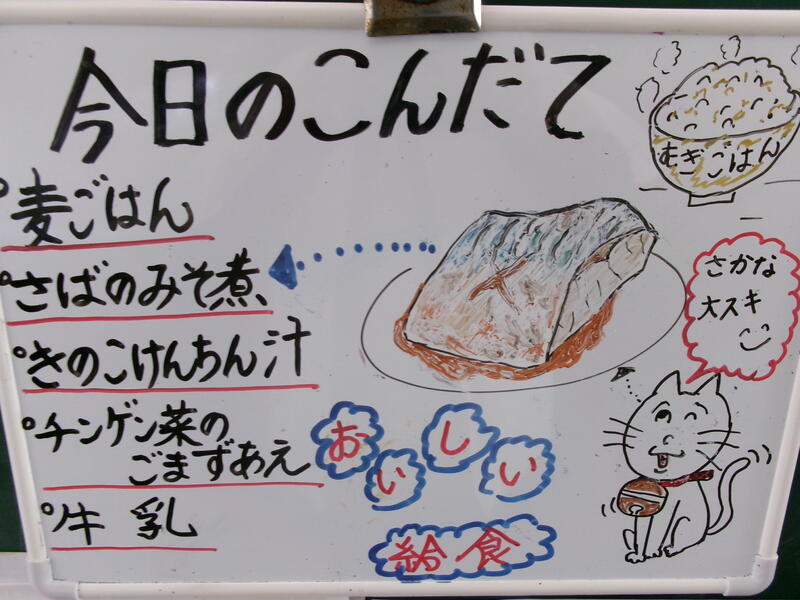 今日のこんだて
むぎごはん
°麦ごはん
°さばのみそ煮
°きのこけんちん汁
°チンゲン菜の
ごまずあえ
°牛乳
さかな
大スキ
おいしい
給食